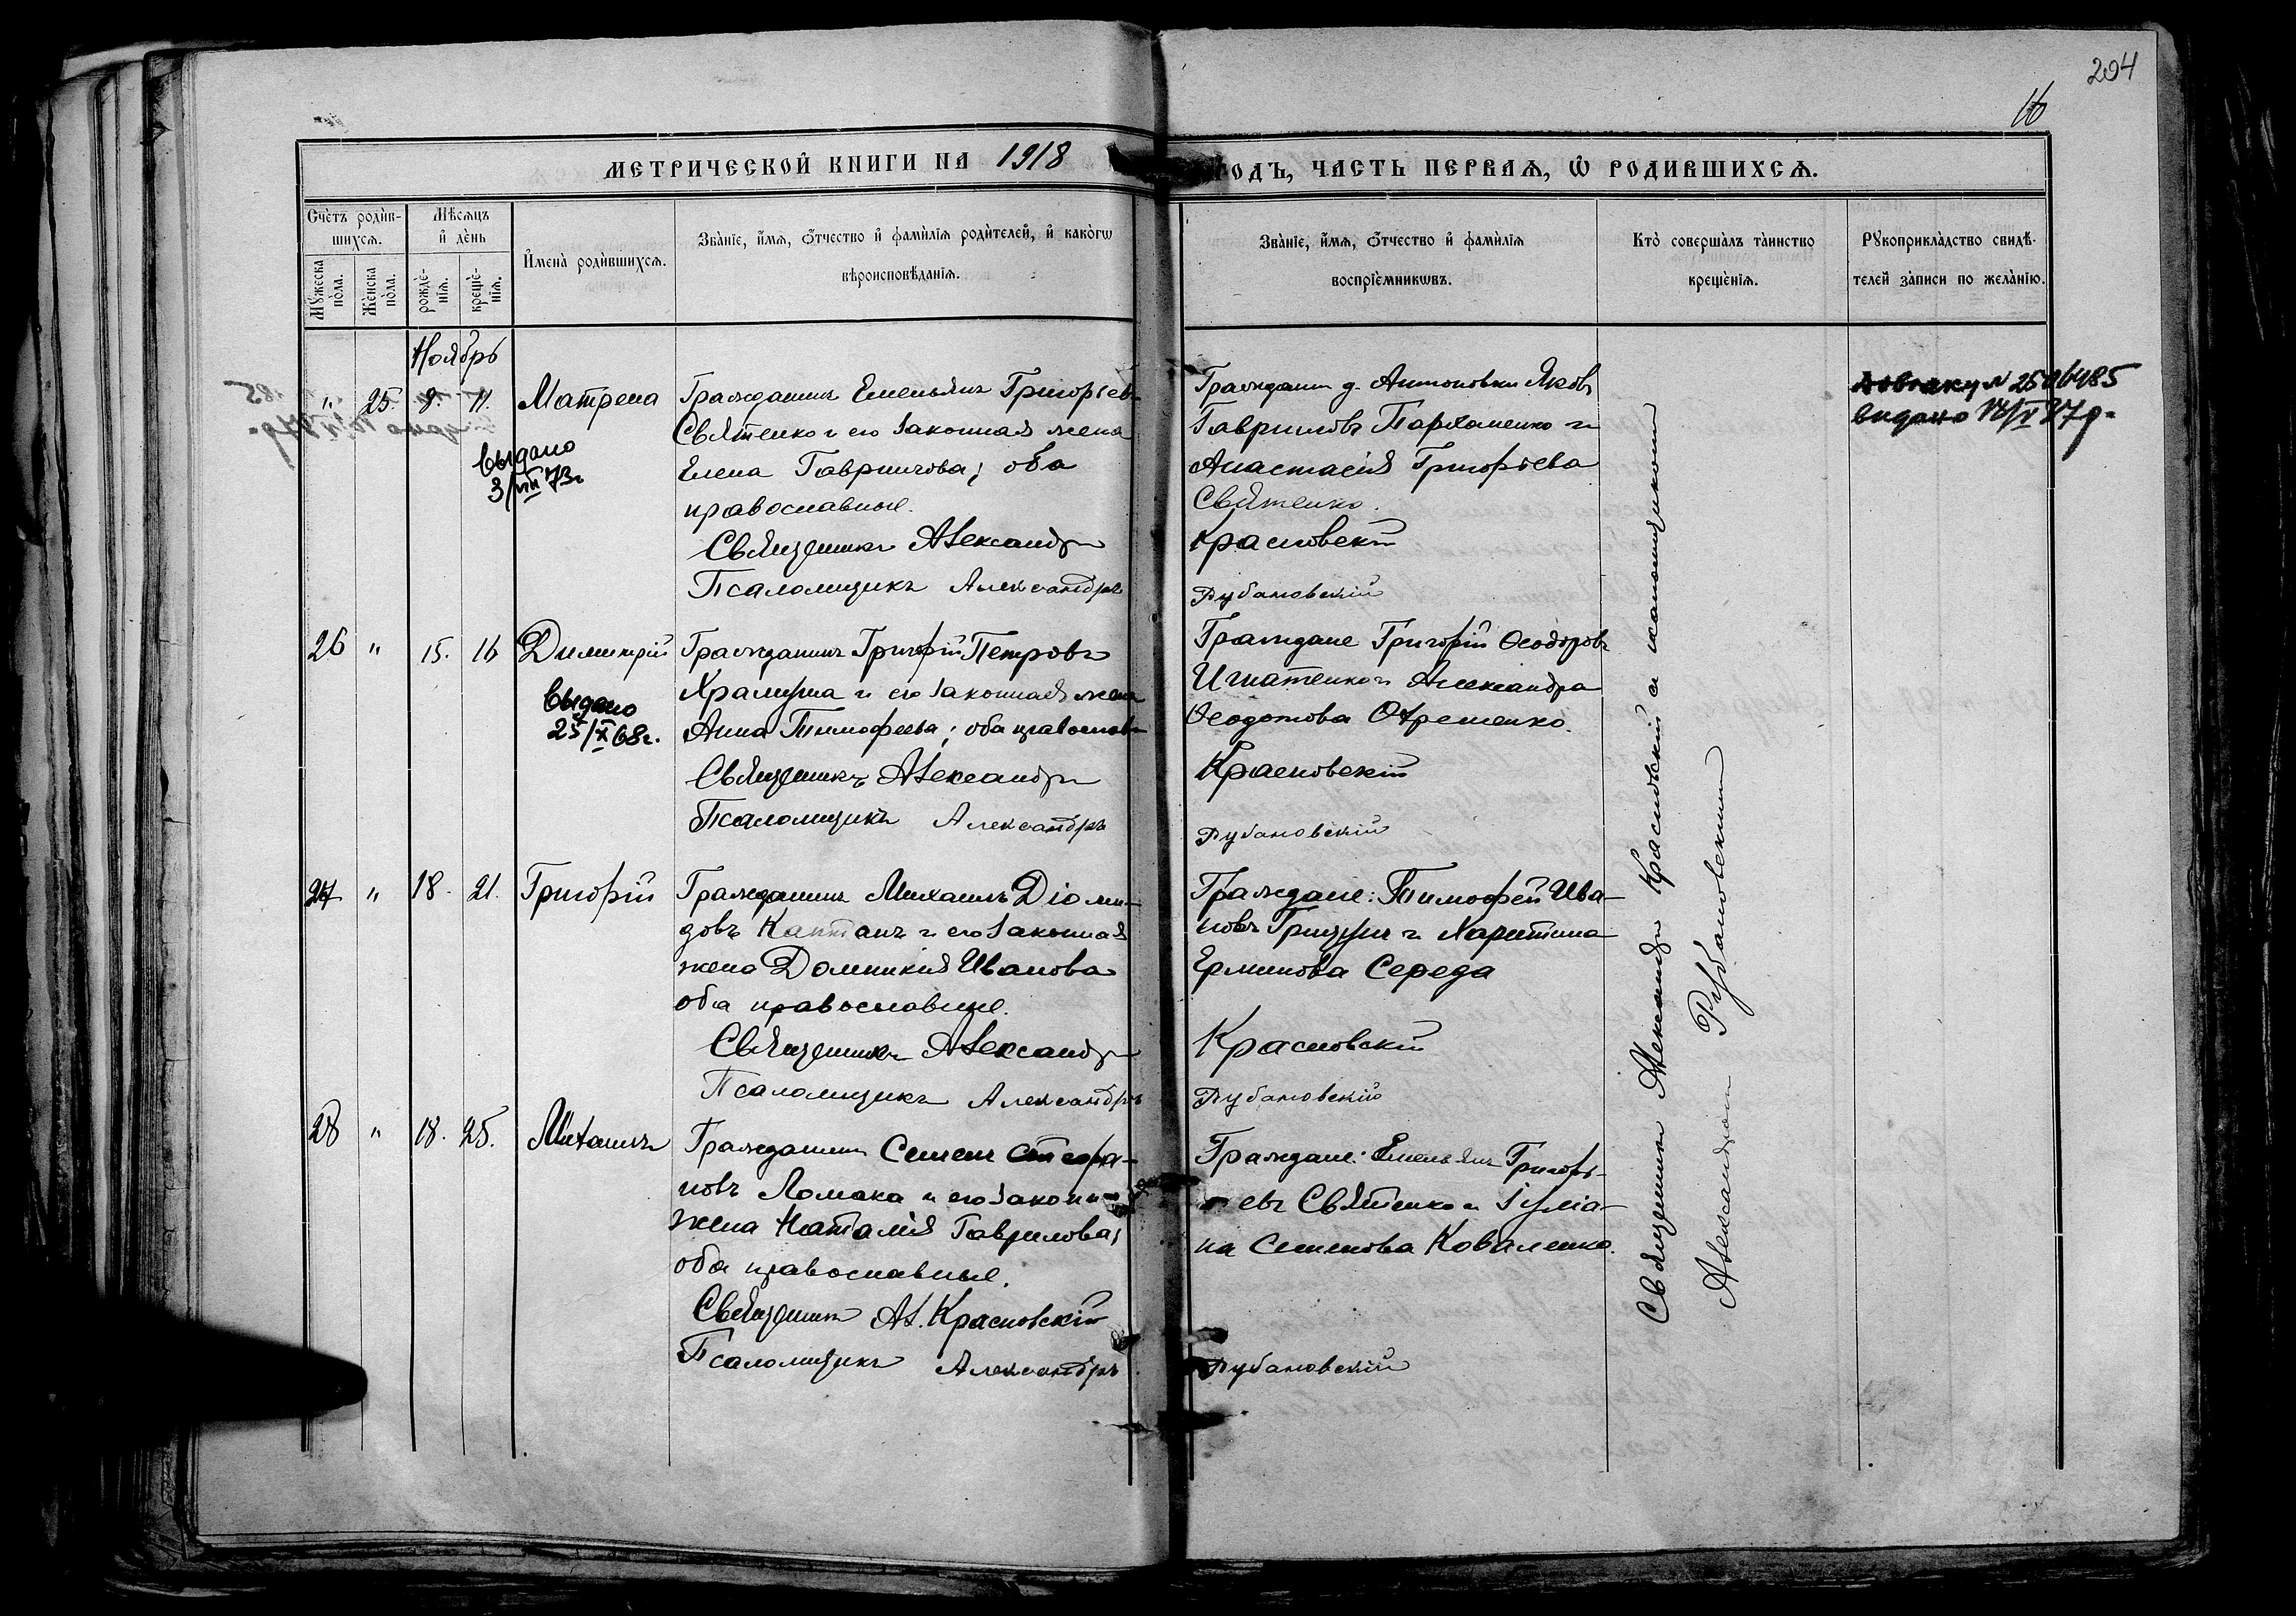 204
16
МЕТРИЧЕСКОЙ КНИГИ НА 1918 ГОДЪ, ЧАСТЬ ПЕРВАЯ, Ѡ РОДИВШИХСЯ.
Счетъ родив-
шихся.
Мужеска
пола.
Женска
пола.
Мѣсяцъ
и день
рожде-
нія.
креще-
нія.
Имена родившихся.
Званіе, имя, отчество и фамилія родителей, и какогѡ
вѣроисповѣданія.
Званіе, имя, отчество и фамилія
воспріемникѡвъ.
Кто совершалъ таинство
крещенія.
Рукоприкладство свидѣ-
телей записи по желанію.
Ноябрь
" 25. 9. 11. Матрена
Выдано
3/VIII 73г
Гражданинъ Емельянъ Григорьев
Святенко и его законная жена
Елена Гаврилова; оба
православные.
Священникъ Александръ
Псаломщикъ Александръ
Гражданин д. Антоновки Яковъ
Гавриловъ Пархоменко и
Анастасія Григорьева
Святенко.
Красновскій
Рубановскій
N 2506485
видано
26 " 15. 16 Димитрій
Выдано
25/X 68г.
Гражданинъ Григорій Петровъ
и его законная жена
Анна Тимофеева; оба православн
Священникъ Александръ
Псаломщикъ Александръ
Граждане Григорій Ѳеодоровъ
Игнатенко и Александра
Ѳеодотова
Красновскій
Рубановскій
27 " 18. 21. Григорій
Гражданинъ Михаилъ Діоми-
довъ Каптанъ и его законная
жена Домникия Иванова
оба православные.
Священникъ Александръ
Псаломщикъ Александръ
Граждане: Тимофей Ива-
новъ Грицунъ и Харитина
Середа
Красновскій
Рубановскій
28 " 18. 25. Михаилъ
Гражданинъ Семенъ Стефа-
новъ Ломака и его законн
жена Наталія Гаврилова;
оба православные.
Священникъ Ал. Красновскій
Псаломщикъ Александръ
Граждане: Емельянъ Григорь-
евъ Святенко и Іуліа-
на Семенова Коваленко.
Рубановскій
Священникъ Александръ Красновскій с псаломщикомъ
Александромъ Рубановскимъ